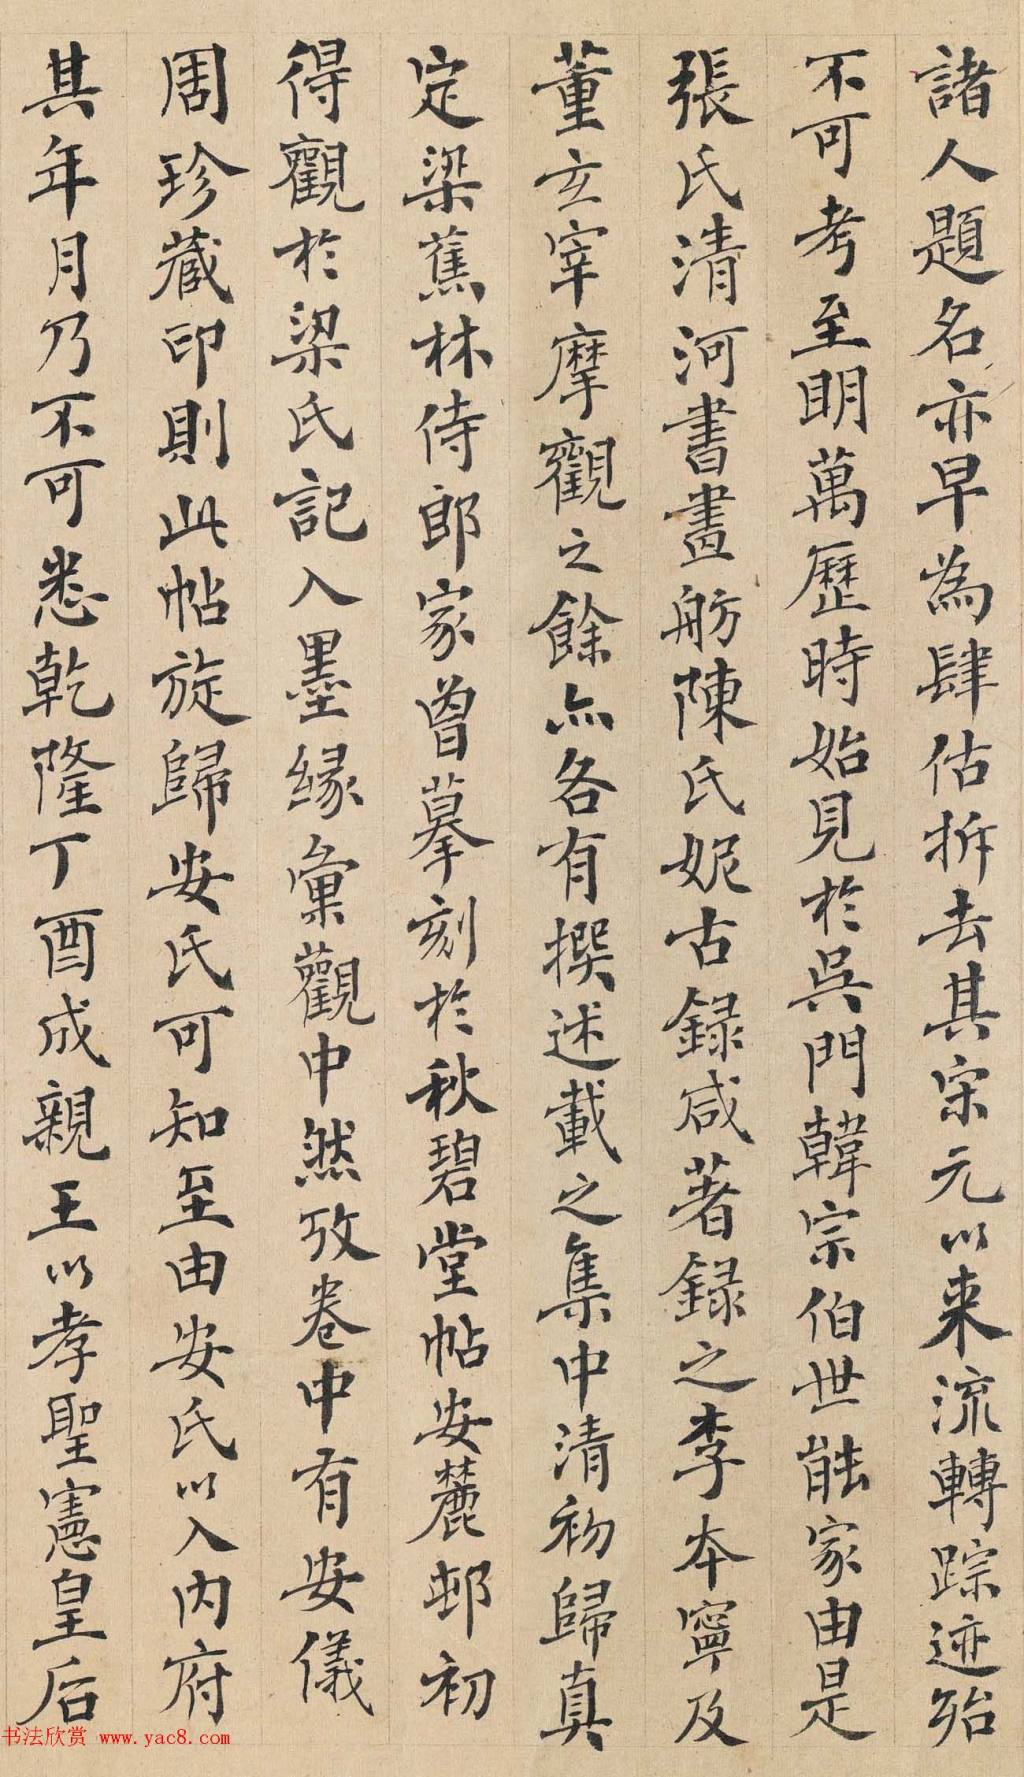 諸人題名亦早為肆估拆去其宋元以来流轉踪迹殆
不可考至明萬歷時始見於吳門韓宗伯世能家由是
張氏清河書畫舫陳氏妮古録咸著録之李本寧及
董玄宰摩觀之餘亦各有撰述載之集中清初歸真
定梁蕉林侍郎家曾摹刻於秋碧堂帖安麓邨初
得觀於梁氏記入墨緣彙觀中然攷卷中有安儀
周珍藏印則此帖旋歸安氏可知至由安氏以入内府
其年月乃不可悉乾隆丁酉成親王以孝聖憲皇后
书法欣赏 www.yac8.com